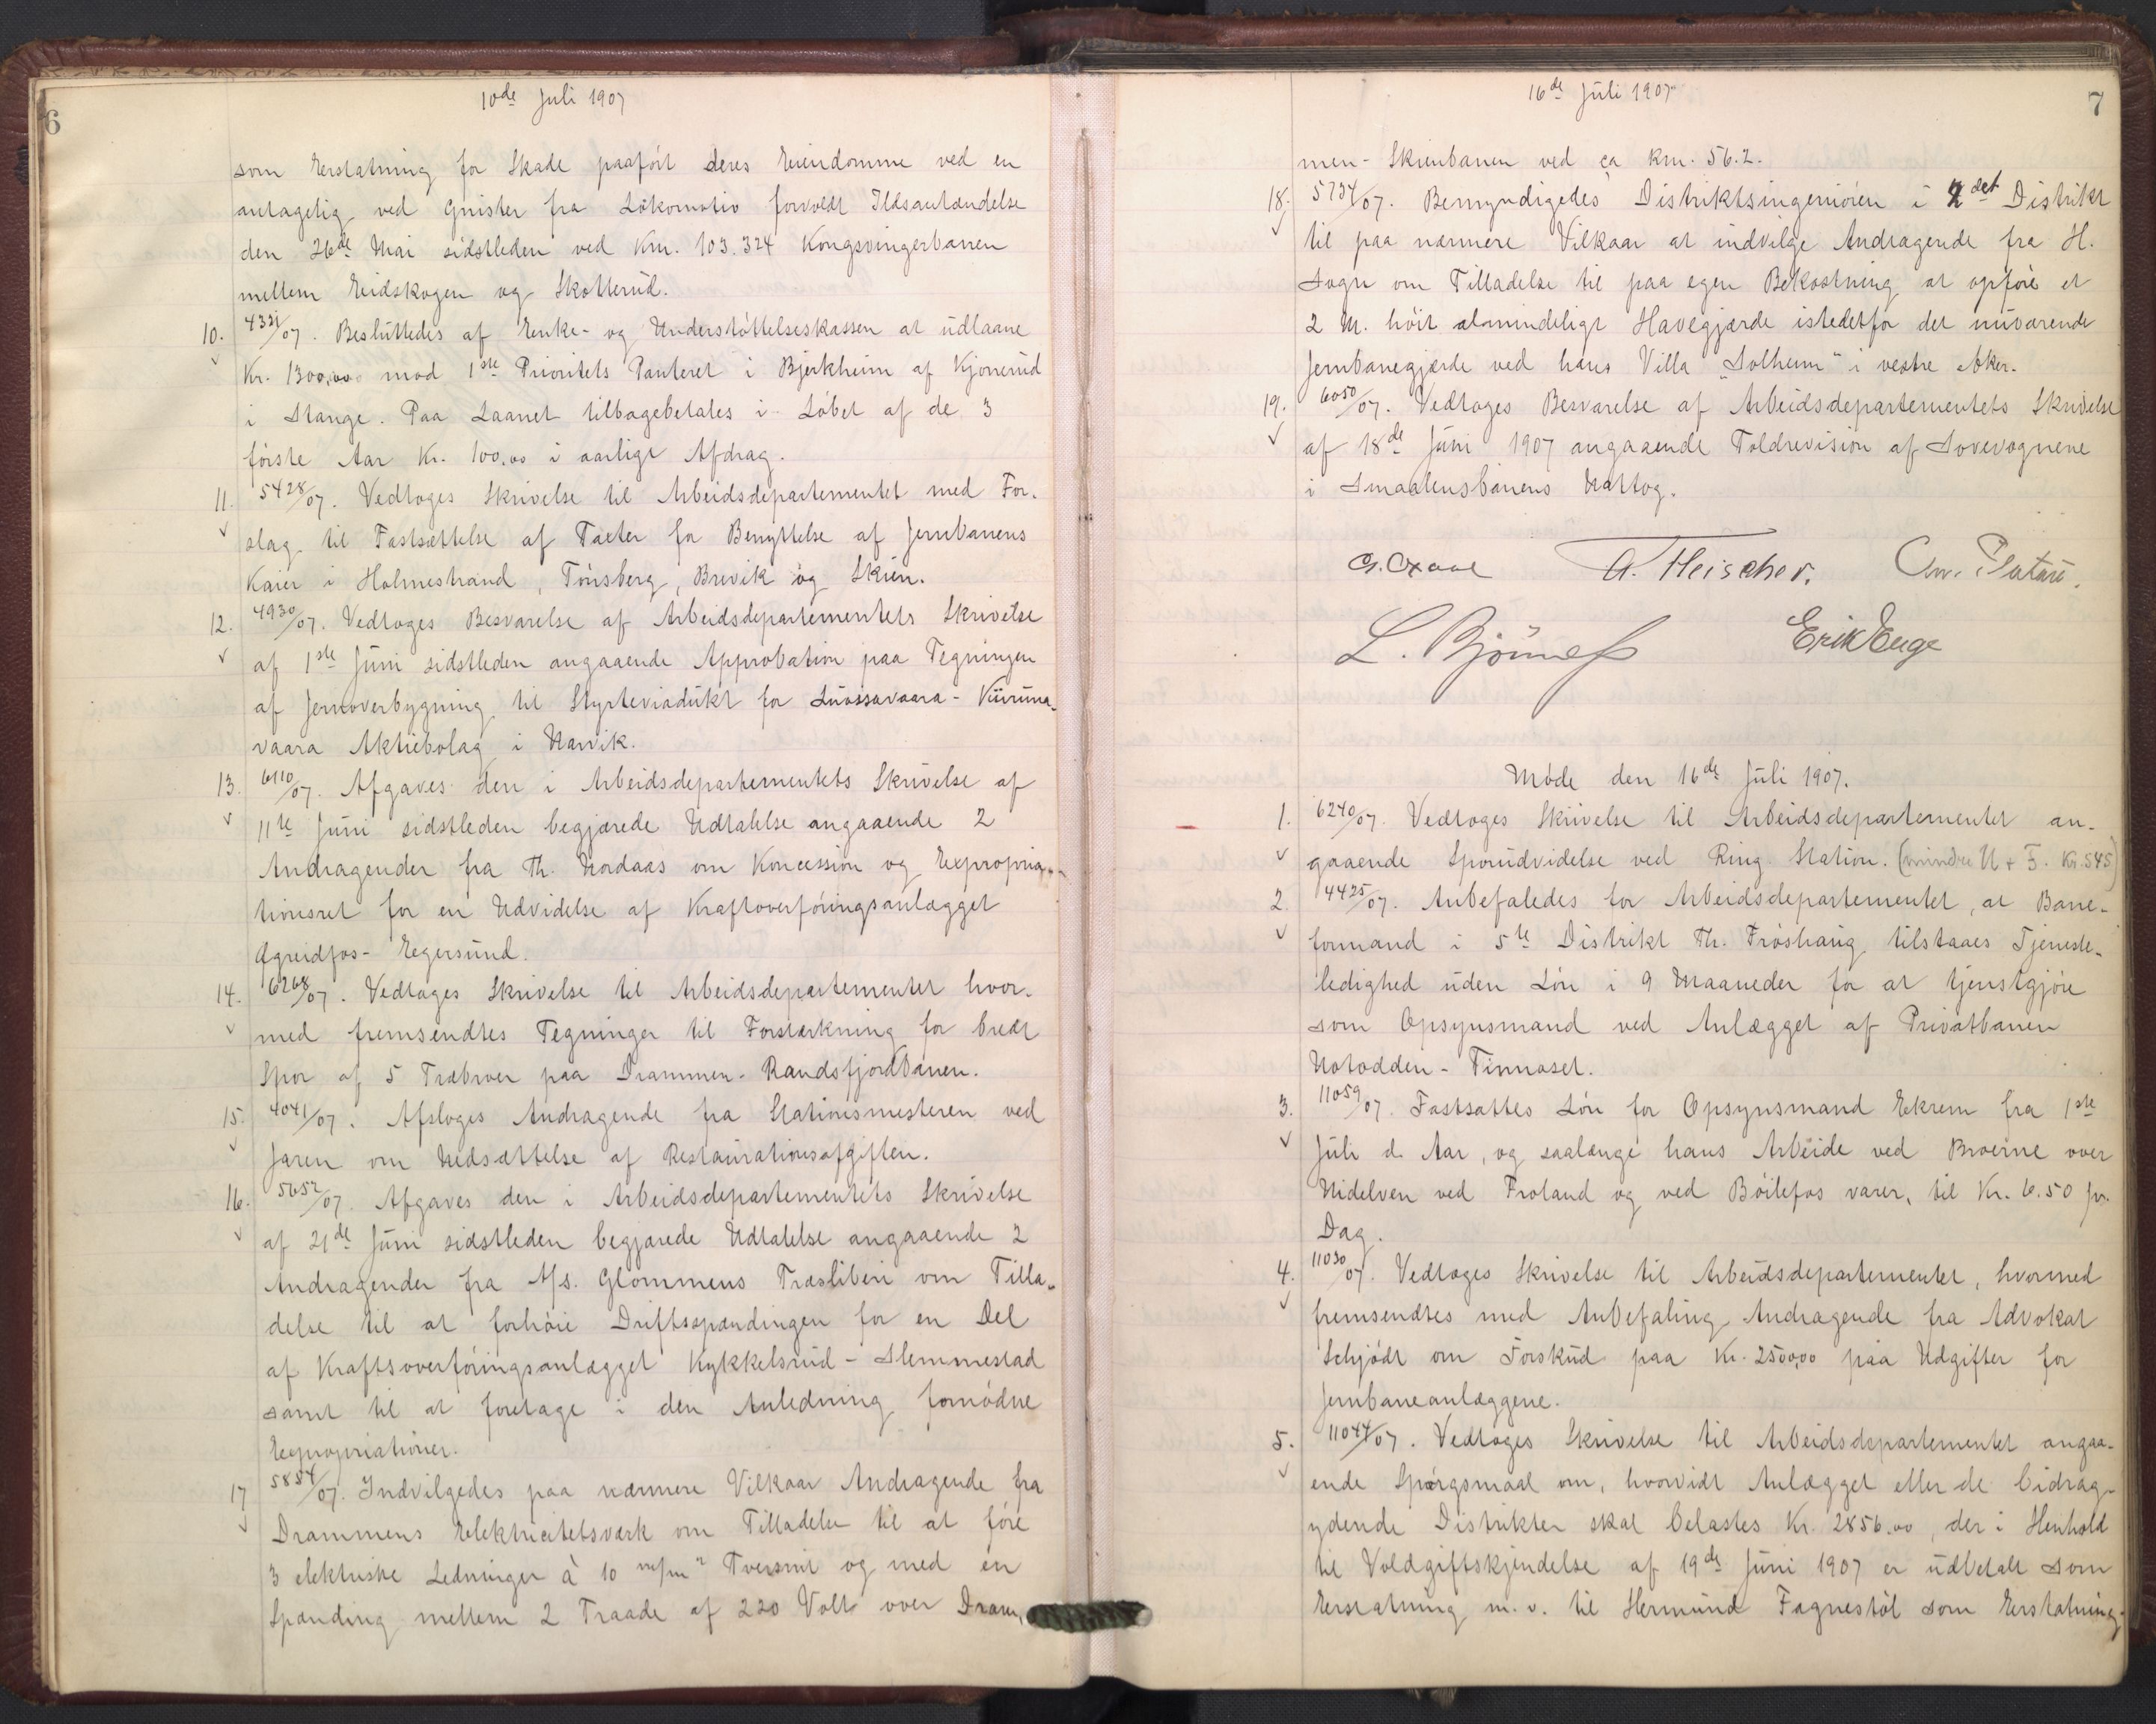 6
10de Juli 1907
som Erstatning for Skade paaført deres Eiendomme ved en
antagelig ved Gnister fra Lokomotiv forvoldt Ildsantændelse
den 26de Mai sidstleden ved Km. 103.324 Kongsvingerbanen
mellem Eidskogen og Skotterud.
10. 4321/07. Besluttedes af Enke- og Understøttelseskassen at udlaane
Kr. 1300,00 mod 1ste Prioritets Panteret i Bjerkheim af Kjonerud
i Stange. Paa Laanet tilbagebetales i Løbet af de 3
første Aar Kr. 100,00 i aarligt Afdrag.
11. 5428/07. Vedtoges Skrivelse til Arbeidsdepartementet med For-
slag til Fastsættelse af Taxter for Benyttelse af Jernbanens
Kaier i Holmestrand, Tønsberg, Brevik og Skien.
12. 4930/07. Vedtoges Besvarelse af Arbeidsdepartementets Skrivelse
af 1ste Juni sidstleden angaaende Approbation paa Tegningen
af Jernoverbygning til Styrteviadukt for Luossavaara - Kiiruna-
vaara Aktiebolag i Narvik.
13. 6110/07. Afgaves den i Arbeidsdepartementets Skrivelse af
11te Juni sidstleden begjærede Udtalelse angaaende 2
Andragender fra Th. Nordaas om Koncession og Expropria-
tionsret for en Udvidelse af Kraftoverføringsanlægget
Øgreidfos - Egersund.
14. 6268/07. Vedtoges Skrivelse til Arbeidsdepartementet hvor-
med fremsendtes Tegninger til Forstærkning for bredt
Spor af 5 Træbroer paa Drammen - Randsfjordbanen.
15. 4041/07. Afsloges Andragende fra Stationsmesteren ved
Jaren om Nedsættelse af Restaurationsafgiften.
16. 5652/07. Afgaves den i Arbeidsdepartementets Skrivelse
af 21de Juni sidstleden begjærede Udtalelse angaaende 2
Andragender fra A/s. Glommens Træsliberi om Tilla-
delse til at forhøie Driftsspændingen for en Del
af Kraftsoverføringsanlægget Kykkelsrud - Slemmestad
samt til at foretage i den Anledning fornødne
Expropriationer.
17 5854/07. Indvilgedes paa nærmere Vilkaar Andragende fra
Drammens Elektricitetsværk om Tilladelse til at føre
3 elektriske Ledninger à 10 m/m² Tversnit og med en
Spænding mellem 2 Traade af 220 Volt over Dram-
7
16de Juli 1907
men - Skienbanen ved ca km. 56.2.
18. 5734/07. Bemyndigedes Distriktsingeniøren i 2det Distrikt
til paa nærmere Vilkaar at indvilge Andragende fra H.
Sogn om Tilladelse til paa egen Bekostning at opføre et
2 M. høit almindeligt Havegjærde istedetfor det nuværende
Jernbanegjærde ved hans Villa "Solheim" i vestre Aker.
19. 6050/07. Vedtoges Besvarelse af Arbeidsdepartementets Skrivelse
af 18de Juni 1907 angaaende Toldrevision af Sovevognene
i Smaalensbanens Nattog.
A. Fleischer.
L. Bjørnes Erik Enge
Møde den 16de Juli 1907.
1. 6240/07. Vedtoges Skrivelse til Arbeidsdepartementet an-
gaaende Sporudvidelse ved Ring Station. (mindre U + F. Kr. 545)
2. 4425/07. Anbefaledes for Arbeidsdepartementet, at Bane-
formand i 5te Distrikt Th. Frøshaug tilstaaes Tjeneste-
ledighed uden Løn i 9 Maaneder for at tjenstgjøre
som Opsynsmand ved Anlægget af Privatbanen
Notodden - Tinnoset.
3. 11059/07. Fastsattes Løn for Opsynsmand Ekrem fra 1ste
Juli d. Aar, og saalænge hans Arbeide ved Broerne over
Nidelven ved Froland og ved Bøilefos varer, til Kr. 6.50 pr.
Dag.
4. 11030/07. Vedtoges Skrivelse til Arbeidsdepartementet, hvormed
fremsendtes med Anbefaling Andragende fra Advokat
Schjødt om Forskud paa Kr. 2500,00 paa Udgifter for
Jernbaneanlæggene.
5. 11044/07. Vedtoges Skrivelse til Arbeidsdepartementet angaa-
ende Spørgsmaal om, hvorvidt Anlægget eller de bidrag-
ydende Distrikter skal belastes Kr. 2856.00, der i Henhold
til Voldgiftskjendelse af 19de Juni 1907 er udbetalt som
Erstatning m.v. til Hermund Fagnestøl som Erstatning